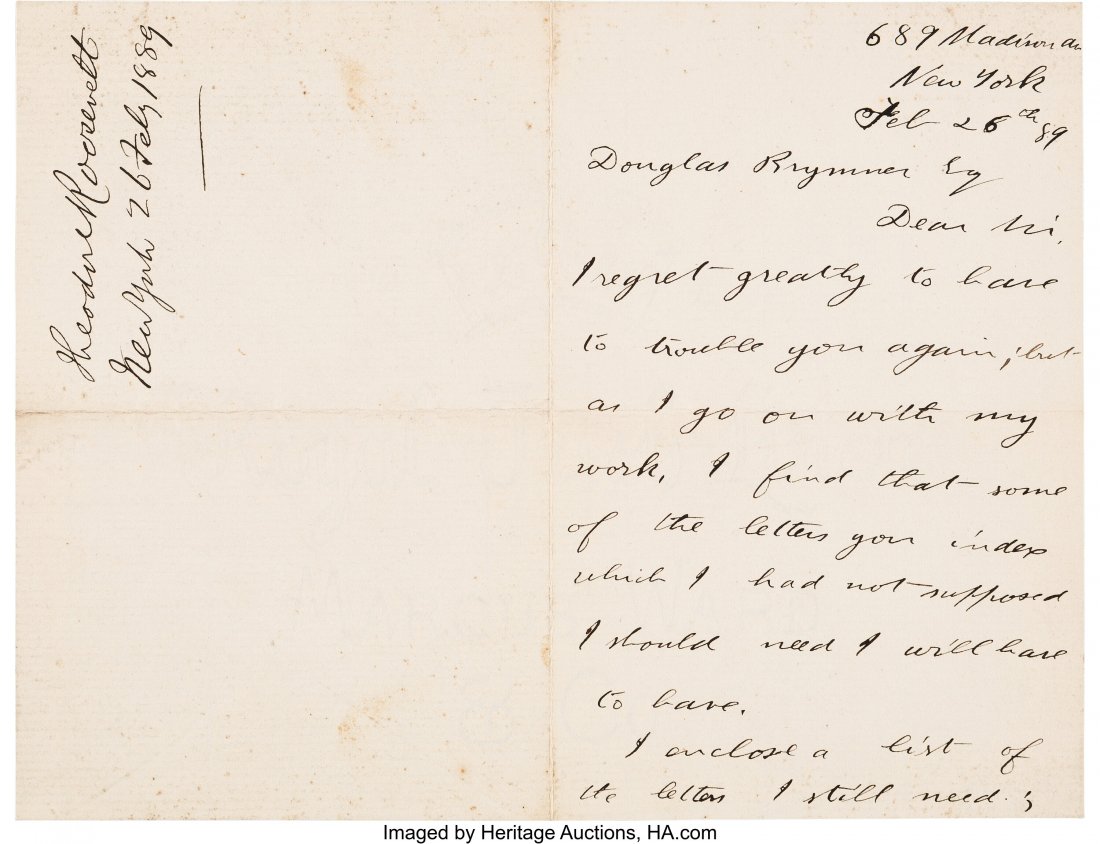 Theodore Roosevelt
New York 26 Feby 1889
689 Madison Av
New York
Feb 26th 89
Douglas Brymner Esq
Dear Sir,
I regret greatly to have
to trouble you again; but
as I go on with my
work, I find that some
of the letters you index
which I had not supposed
I should need I will have
to have.
I enclose a list of
the letters I still need;
Imaged by Heritage Auctions, HA.com